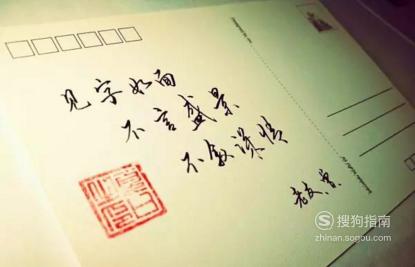 见字如面
不言盛景
不叙深情
搜狗指南
zhinan.sogou.com